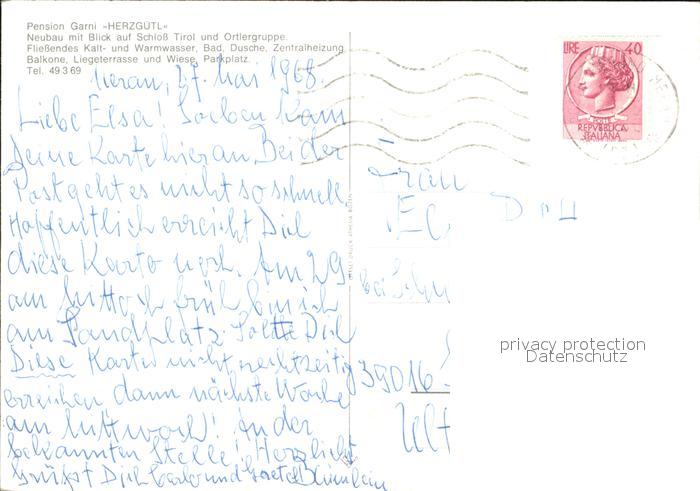 Pension Garni »HERZGÜTL«
Neubau mit Blick auf Schloß Tirol und Ortlergruppe.
Fließendes Kalt- und Warmwasser, Bad, Dusche, Zentralheizung,
Balkone, Liegeterrasse und Wiese, Parkplatz.
Tel. 49369
Meran, 27. Mai 1968
Liebe Elsa! Soeben kam
Deine Karte hier an. Bei der
Post geht es nicht so schnell
Hoffentlich erreicht Dich
diese Karte noch. Am 29.
am Mittwoch früh bin ich
am Sandplatz. Sollte Dich
Diese Karte nicht rechtzeitig
erreichen dann nächste Woche
am Mittwoch! An der
bekannten Stelle! Herzlichst
Grüßt Dich und
LIRE 40
REPVBBLICA
ITALIANA
Frau
bei
39016
Ult
privacy protection
Datenschutz